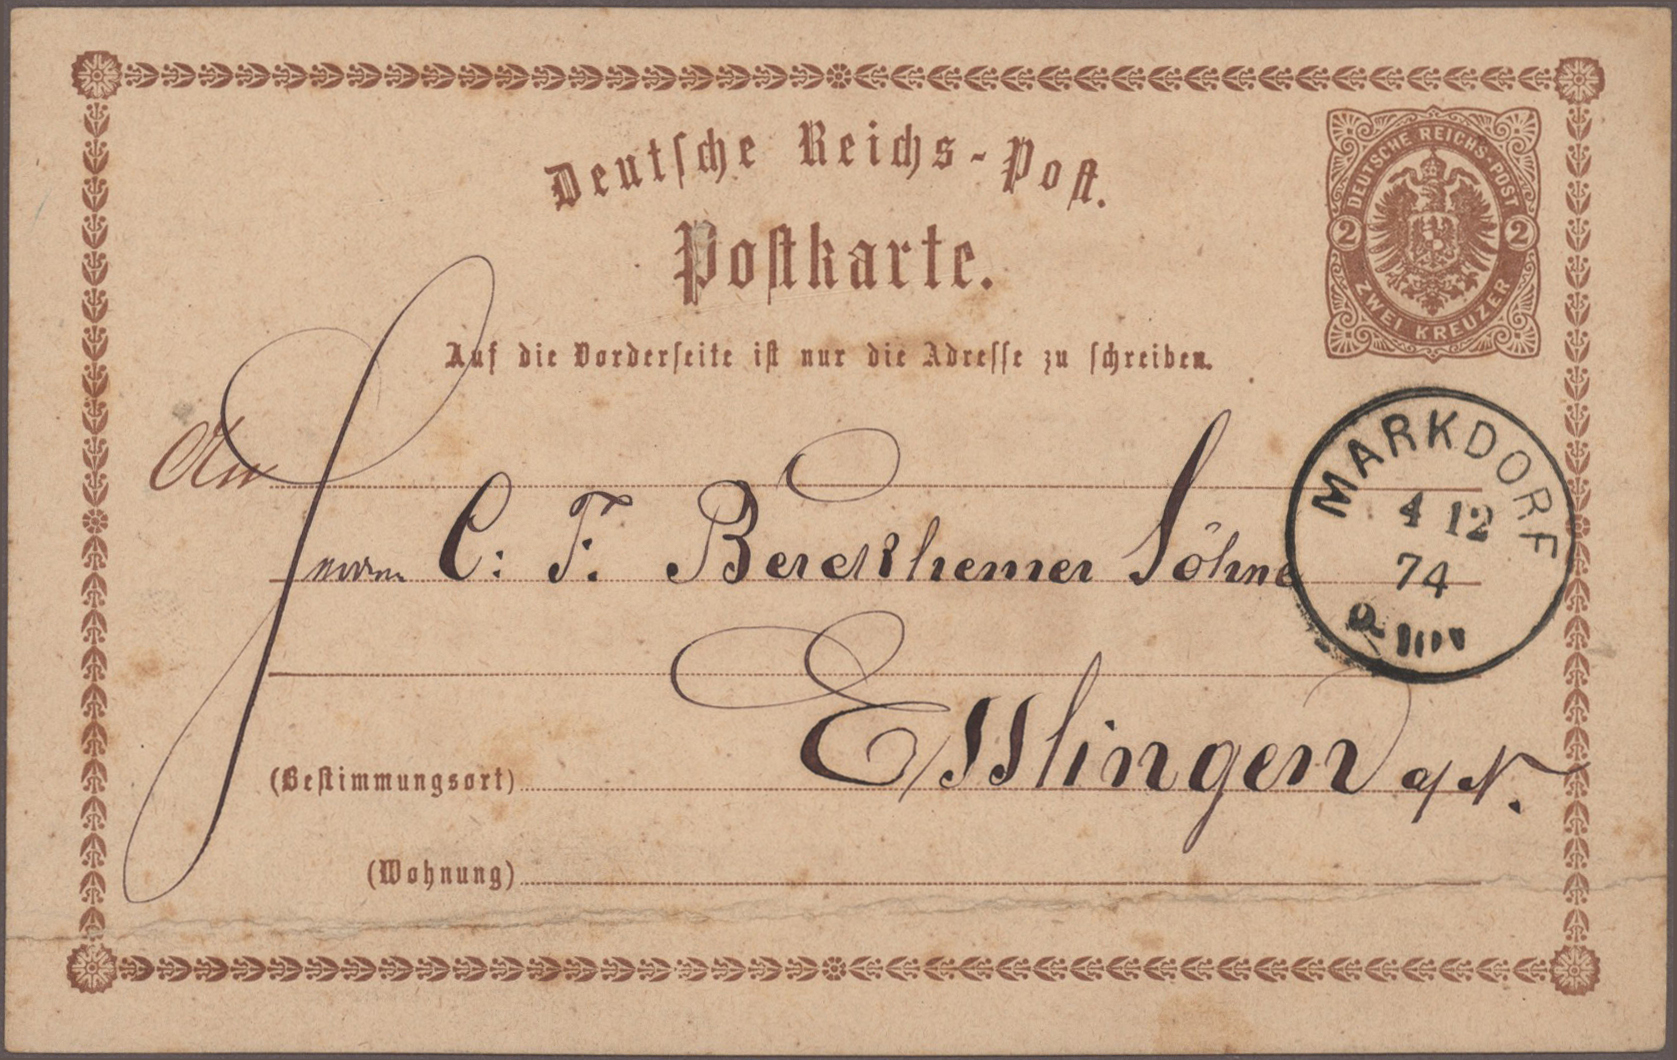 Deutsche Reichs-Post.
Postkarte.
DEUTSCHE REICHS-POST
2 2
ZWEI KREUZER
Auf die Vorderseite ist nur die Adresse zu schreiben.
An
Herrn C: F. Berckhemer Söhne
MARKDORF
4 12
74
Esslingen a/N.
(Bestimmungsort)
(Wohnung)